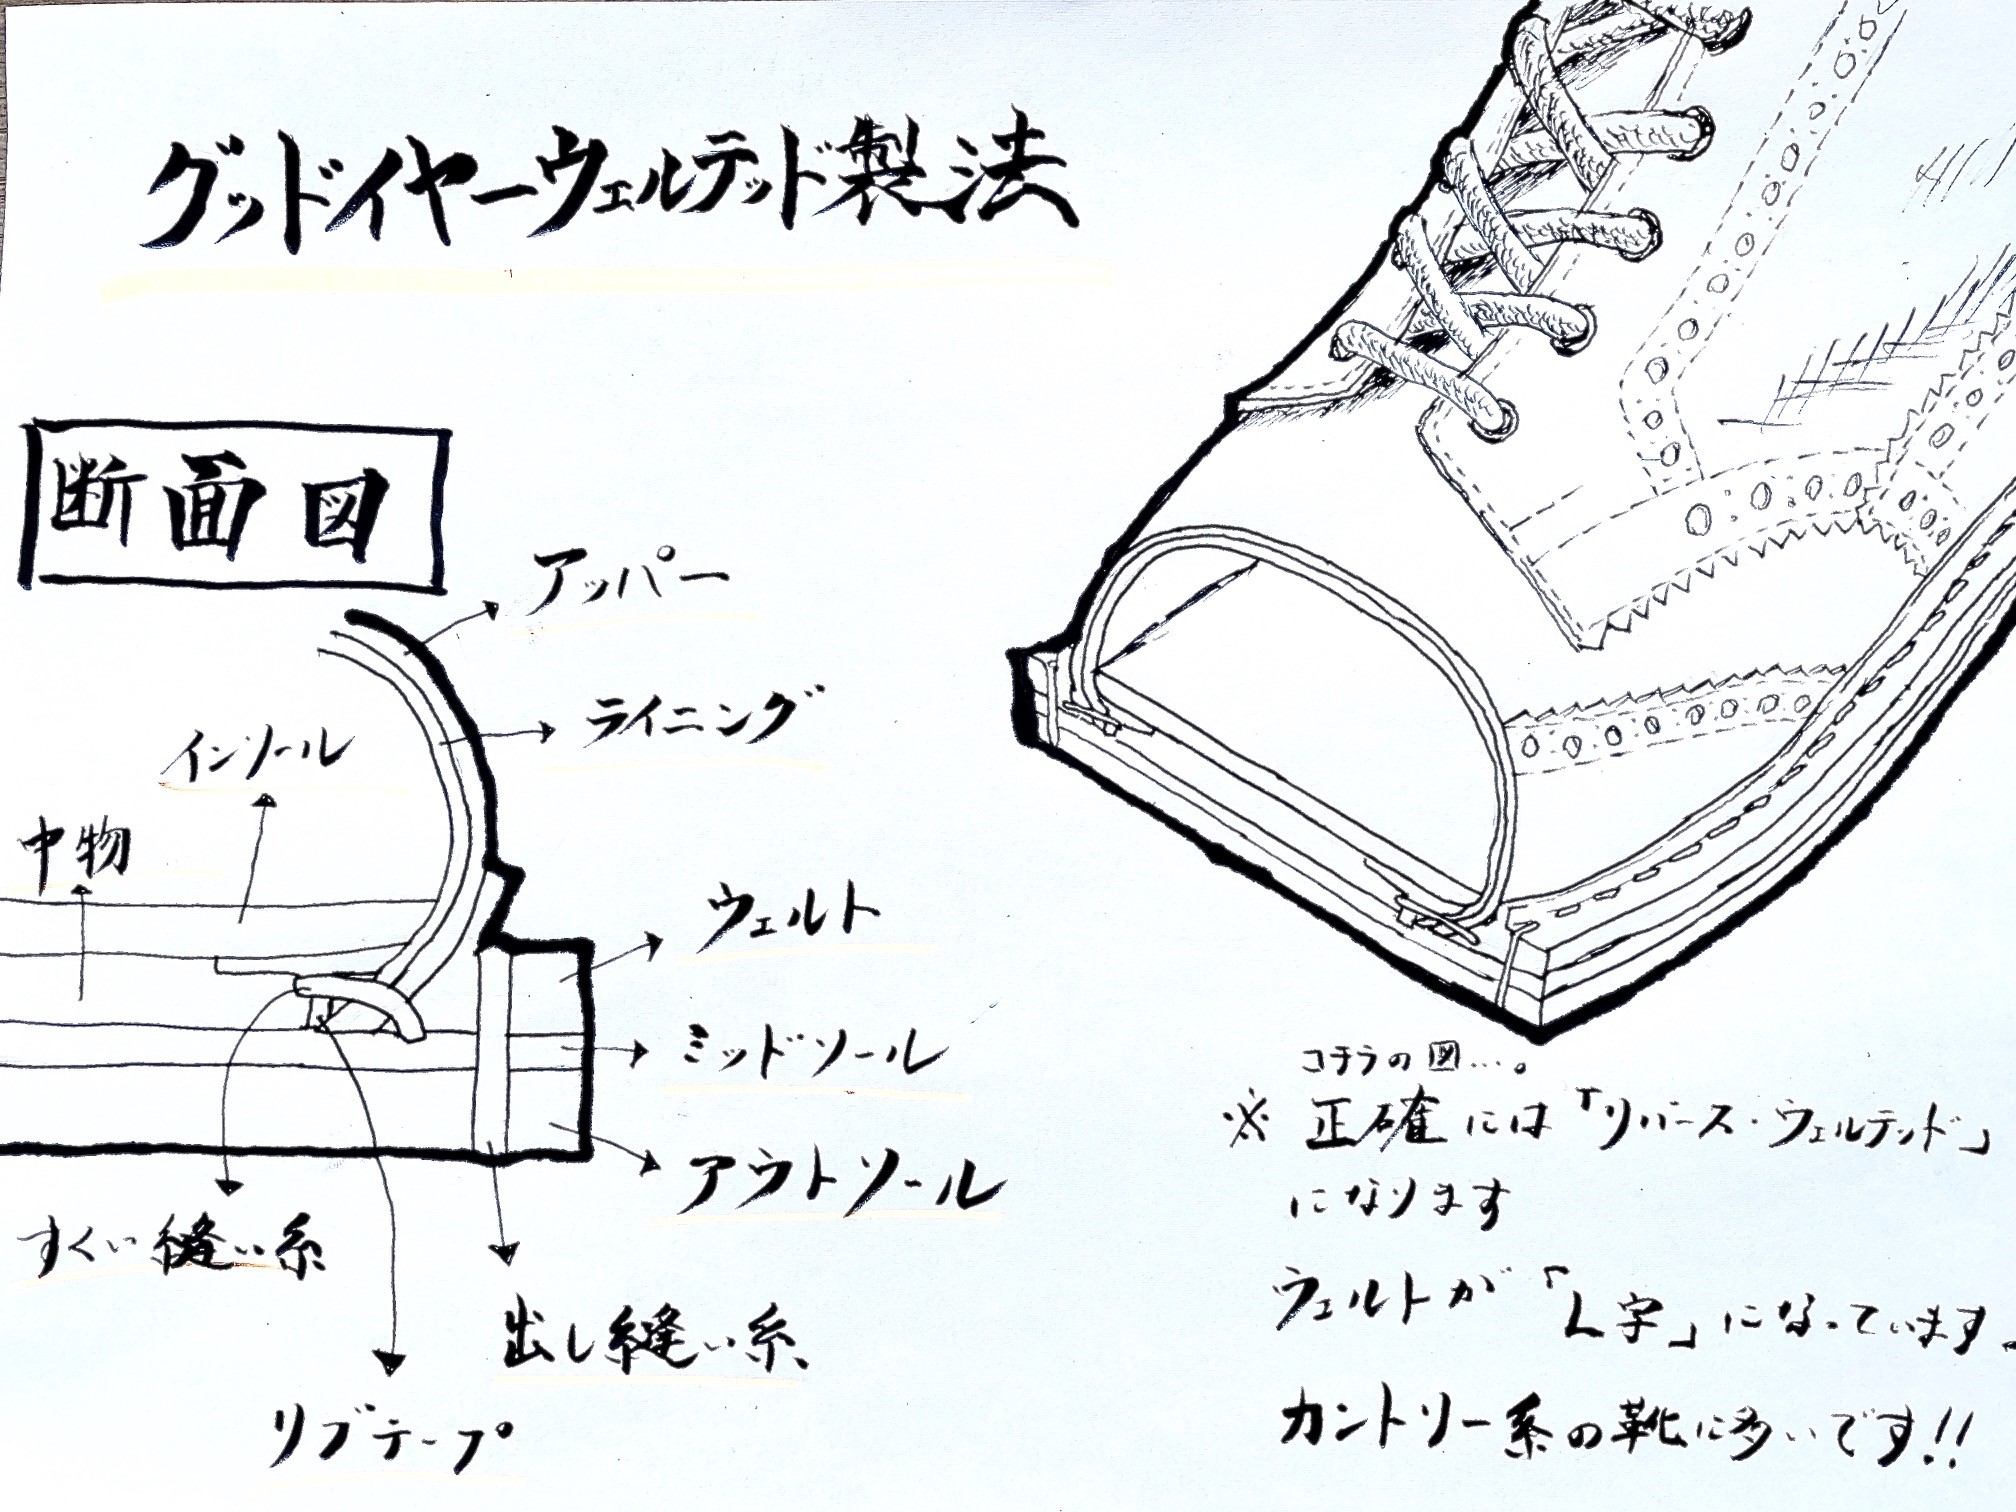 グッドイヤーウェルテッド製法
断面図
アッパー
ライニング
インソール
中物
ウェルト
ミッドソール
アウトソール
すくい縫い糸
出し縫い糸
リブテープ
コチラの図…。
※正確には「リバース・ウェルテッド」
になります
ウェルトが「L字」になっています。
カントリー系の靴に多いです!!